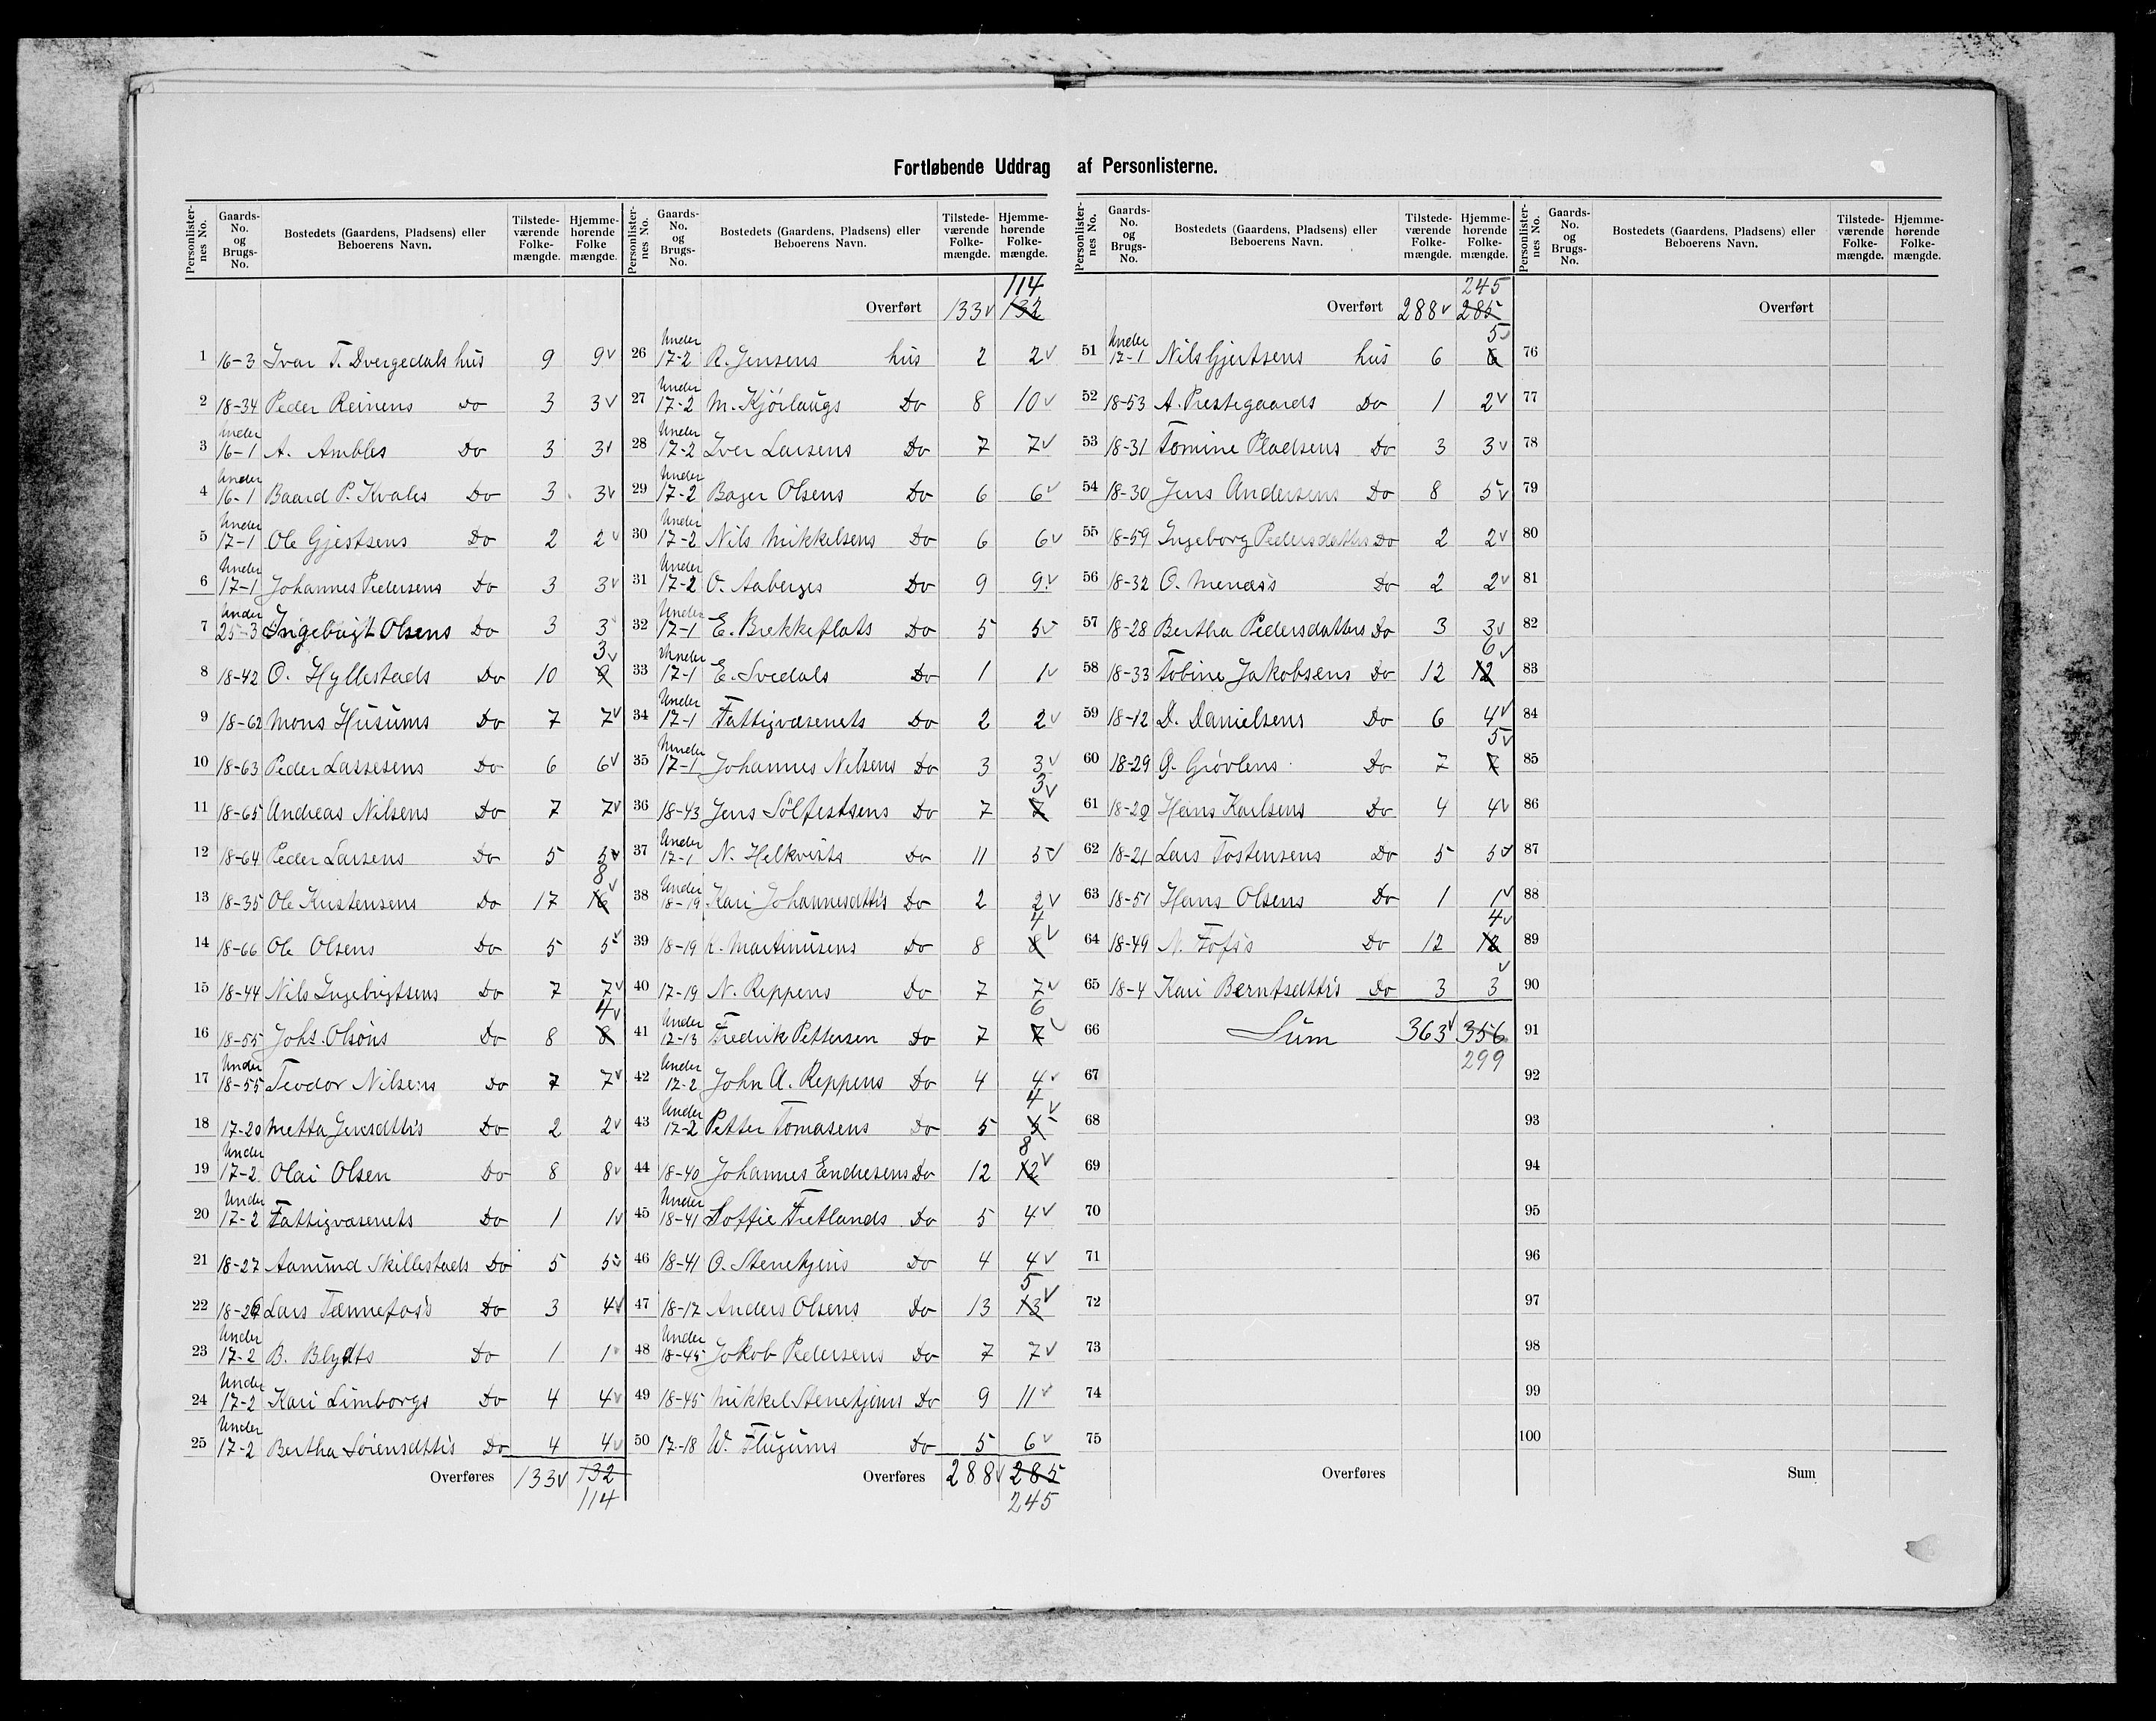 Fortløbende Uddrag af Personlisterne.
Personlister-nes No. Gaards-No. og Brugs-No. Bostedets (Gaardens, Pladsens) eller Beboerens Navn. Tilstede-værende Folke-mængde. Hjemme-hørende Folke mængde.
1 16-3 Ivar T. Dvergedals hus 9 9v
2 18-34 Peder Reinens Do 3 3v
3 Under 16-1 A. Ambles Do 3 3v
4 Under 16-1 Baard P. Kvales Do 3 3v
5 Under 17-1 Ole Gjestsens Do 2 2v
6 Under 17-1 Johannes Pedersens Do 3 3v
7 Under 25-3 Ingebrigt Olsens Do 3 3
8 18-42 O. Hyllestads Do 10 9 3v
9 18-62 Mons Husums Do 7 7v
10 18-63 Peder Lassesens Do 6 6v
11 18-65 Andreas Nilsens Do 7 7v
12 18-64 Peder Larsens Do 5 5v
13 18-35 Ole Kristensens Do 17 16 8v
14 18-66 Ole Olsens Do 5 5v
15 18-44 Nils Ingebrigtsens Do 7 7v
16 18-55 Johs. Olsøns Do 8 8 4v
17 Under 18-55 Teodor Nilsens Do 7 7v
18 17-20 Metta Jensdtti's Do 2 2v
19 Under 17-2 Olai Olsen Do 8 8v
20 Under 17-2 Fattigvæsenets Do 1 1v
21 18-27 Aamund Skillestads Do 5 5v
22 18-26 Lars Tænnefos's Do 3 4v
23 Under 17-2 B. Blydts Do 1 1v
24 Under 17-2 Kari Limborgs Do 4 4v
25 Under 17-2 Bertha Sørensdtti's Do 4 4v
Overføres 133v 132
114
Personlister-nes No. Gaards-No. og Brugs-No. Bostedets (Gaardens, Pladsens) eller Beboerens Navn. Tilstede-værende Folke-mængde. Hjemme-hørende Folke-mængde.
114
Overført 133v 132
26 Under 17-2 R. Jensens hus 2 2v
27 Under 17-2 M. Kjörlaugs Do 8 10v
28 Under 17-2 Iver Larsens Do 7 7v
29 Under 17-2 Bager Olsens Do 6 6v
30 Under 17-2 Nils Mikkelsens Do 6 6v
31 Under 17-2 O. Aaberges Do 9 9v
32 Under 17-1 E. Brekkeflats Do 5 5v
33 Under 17-1 E. Svedals Do 1 1v
34 Under 17-1 Fattigvæsenets Do 2 2v
35 Under 17-1 Johannes Nilsens Do 3 3v
36 18-43 Jens Sölfestsens Do 7 7 3v
37 Under 17-1 N. Helkvists Do 11 5v
38 Under 18-19 Kari Johannesdtti's Do 2 2v
39 18-19 L. Martinusens Do 8 8 4v
40 17-19 N. Reppens Do 7 7v
41 Under 17-13 Fredrik Pettersen Do 7 7 6v
42 Under 17-2 John A. Reppens Do 4 4v
43 Under 17-2 Petter Tomasens Do 5 5 4v
44 18-40 Johannes Endresens Do 12 12 8v
45 Under 18-41 Soffie Fretlands Do 5 4v
46 18-41 O. Stenehjems Do 4 4v
47 18-17 Anders Olsens Do 13 13 5v
48 Under 18-45 Jakob Pedersens Do 7 7v
49 18-45 Mikkel Stenehjems Do 9 11v
50 17-18 W. Flugums Do 5 6v
Overføres 288v 285
245
Personlister-nes No. Gaards-No. og Brugs-No. Bostedets (Gaardens, Pladsens) eller Beboerens Navn. Tilstede-værende Folke-mængde. Hjemme-hørende Folke-mængde.
245
Overført 288v 285
51 Under 17-1 Nils Gjertsens hus 6 6 5v
52 18-53 A. Prestegaards Do 1 2v
53 18-31 Tomine Pladsens Do 3 3v
54 18-30 Jens Andersens Do 8 5v
55 18-59 Ingeborg Pedersdatters Do 2 2v
56 18-32 O. Menæs's Do 2 2v
57 18-28 Bertha Pedersdatters Do 3 3v
58 18-33 Tobine Jakobsens Do 12 12 6v
59 18-12 D. Danielsens Do 6 4v
60 18-29 G. Grøvlens Do 7 7 5v
61 18-22 Hans Karlsens Do 4 4v
62 18-21 Lars Tostensens Do 5 5v
63 18-51 Hans Olsens Do 1 1v
64 18-49 N. Fos's Do 12 12 4v
65 18-4 Kari Berntsdtti's Do 3 3v
66 Sum 363v 356
299
67
68
69
70
71
72
73
74
75
Overføres
Personlister-nes No. Gaards-No. og Brugs-No. Bostedets (Gaardens, Pladsens) eller Beboerens Navn. Tilstede-værende Folke-mængde. Hjemme-hørende Folke-mængde.
Overført
76
77
78
79
80
81
82
83
84
85
86
87
88
89
90
91
92
93
94
95
96
97
98
99
100
Sum